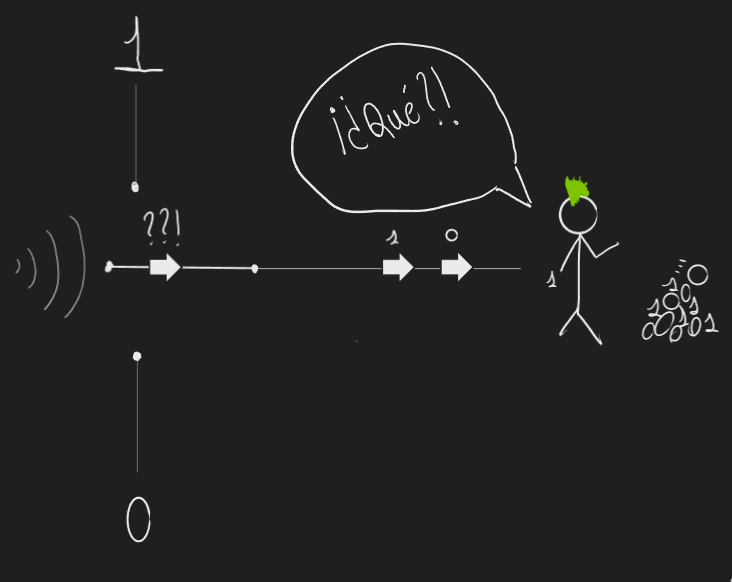 1
¡¿Qué?!
??!
1 0
1
1 0
1 0 1
0 0 1 0 1
0